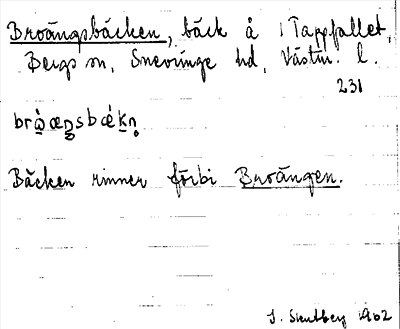 Broängsbäcken, bäck å i Tappfallet,
Bergs sn, Snevringe hd, Västm. l.
231
brȯ̤æŋsbæ̇kn̥
Bäcken rinner förbi Broängen.
J. Sundberg 1902